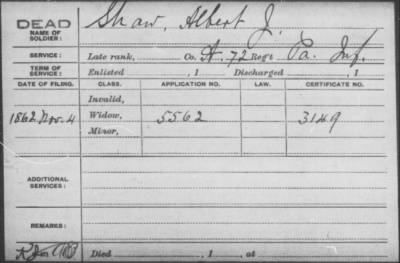 DEAD
NAME OF SOLDIER: Shaw, Albert J.
SERVICE: Late rank, Co. A. 72 Reg't Pa. Inf.
TERM OF SERVICE: Enlisted , 1 Discharged , 1
DATE OF FILING. CLASS. APPLICATION NO. LAW. CERTIFICATE NO.
Invalid,
1862 Nov. 4 Widow, 5562 3149
Minor,
ADDITIONAL SERVICES:
REMARKS:
Died , 1 , at